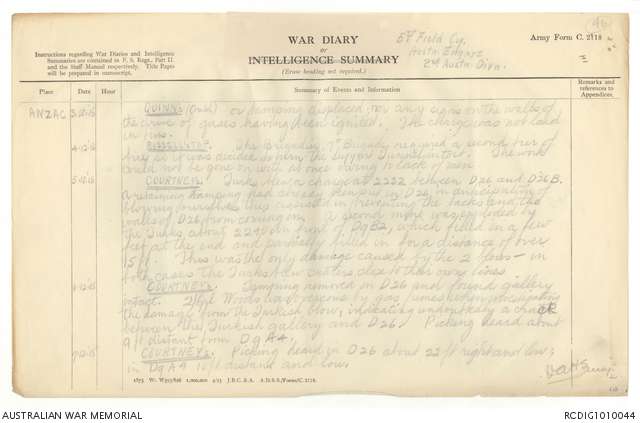 Instructions regarding War Diaries and Intelligence
Summaries are contained in F. S. Regs., Part II.
and the Staff Manual respectively. Title Pages
will be prepared in manuscript.
WAR DIARY
or
INTELLIGENCE SUMMARY
(Erase heading not required.)
5th Field Coy.
Austn Engrs
2nd Austn Divn.
Army Form C. 2118
Place
Date
Hour
Summary of Events and Information
Remarks and
references to
Appendices.
ANZAC 3-12-15 QUINNS (contd) or tamping displaced, nor any signs on the walls of
the drive of gases having been ignited. The charge was not laid
in
4-12-15 The Brigadier, 7th Brigade required a second tier of
so it was decided to the support Tunnel. The work
could not be gone on with at once owing to lack of men
5-12-15 COURTNEYS. Turks blew a charge at 2232 between D26 and D26B.
a retaining tamping had already been put in D26, in anticipation of
blowing ourselves this assisted in preventing the tacks and the
walls of D26 from coming in. A second mine was exploded by
the Turks about 2240 in front of D9B2, which filled in a few
feet at the end and partially filled in for a distance of over
15 ft. This was the only damage caused by the 2 blows - in
both cases the Turks blew craters close to their own lines
6-12-15 COURTNEYS. Tamping removed in D26 and found gallery
intact. 2/Cpl Woods was overcome by gas fumes when investigating
the damage from the Turkish blow, indicating undoubtedly a crack
between the Turkish gallery and D26. Picking heard about
9 ft distant from D9A4.
7-12-15 COURTNEYS. Picking heard in D26 about 22 ft right and low;
in D9A4 10 ft distant and low.
1875 Wt. W593/826 1,000,000 4/15 J.B.C. & A. A.D.S.S./Forms/C. 2118.
AUSTRALIAN WAR MEMORIAL
RCDIG1010044